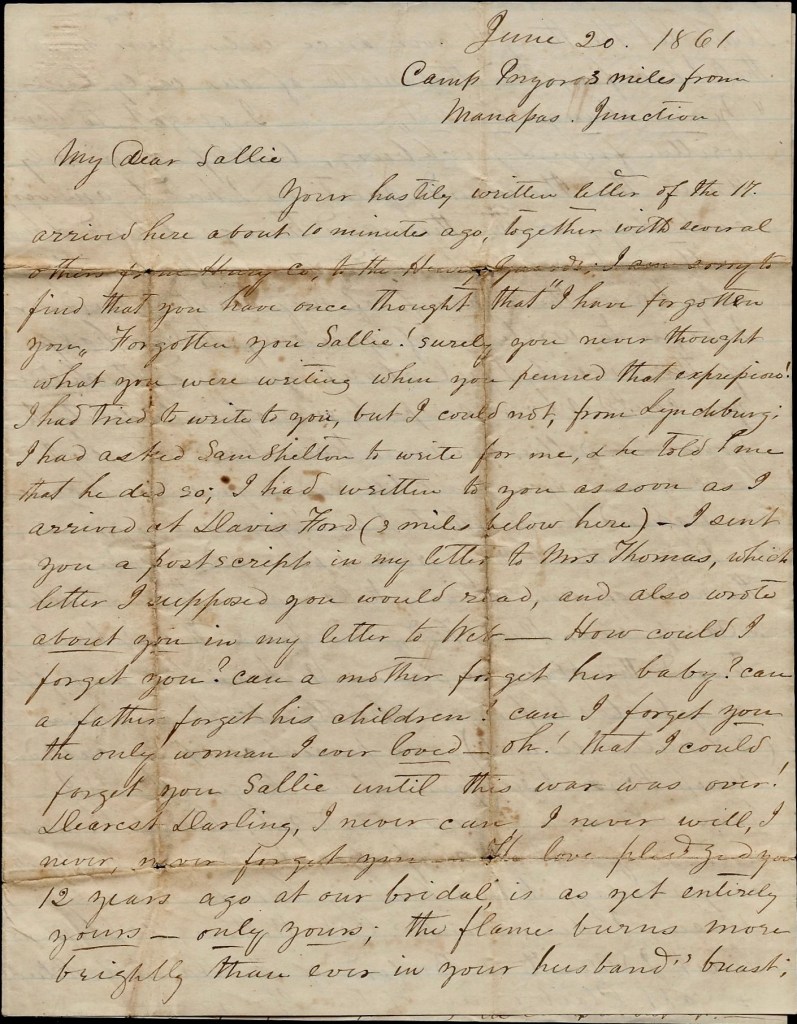 June 20. 1861
Camp Pryor 3 miles from
Manassas. Junction
My Dear Sallie
Your hastily written letter of the 17.
arrived here about 10 minutes ago, together with several
others from Henry Co, to the Henry Guards; I am sorry to
find that you have once thought that "I have forgotten
you„ Forgotten you Sallie! surely you never thought
what you were writing when you penned that expression!
I had tried to write to you, but I could not, from Lynchburg;
I had asked Sam Shelton to write for me, & he told me
that he did so; I had written to you as soon as I
arrived at Davis Ford ( miles below here) – I sent
you a postscript in my letter to Mrs Thomas, which
letter I supposed you would read, and also wrote
about you in my letter to Web — How could I
forget you? can a mother forget her baby? can
a father forget his children? can I forget you
the only woman I ever loved – oh! that I could
forget you Sallie until this war was over!
Dearest Darling, I never can I never will, I
never, never forget you — The love pledged you
12 years ago at our bridal, is as yet entirely
yours – only yours; the flame burns more
brightly than ever in your husband's breast;